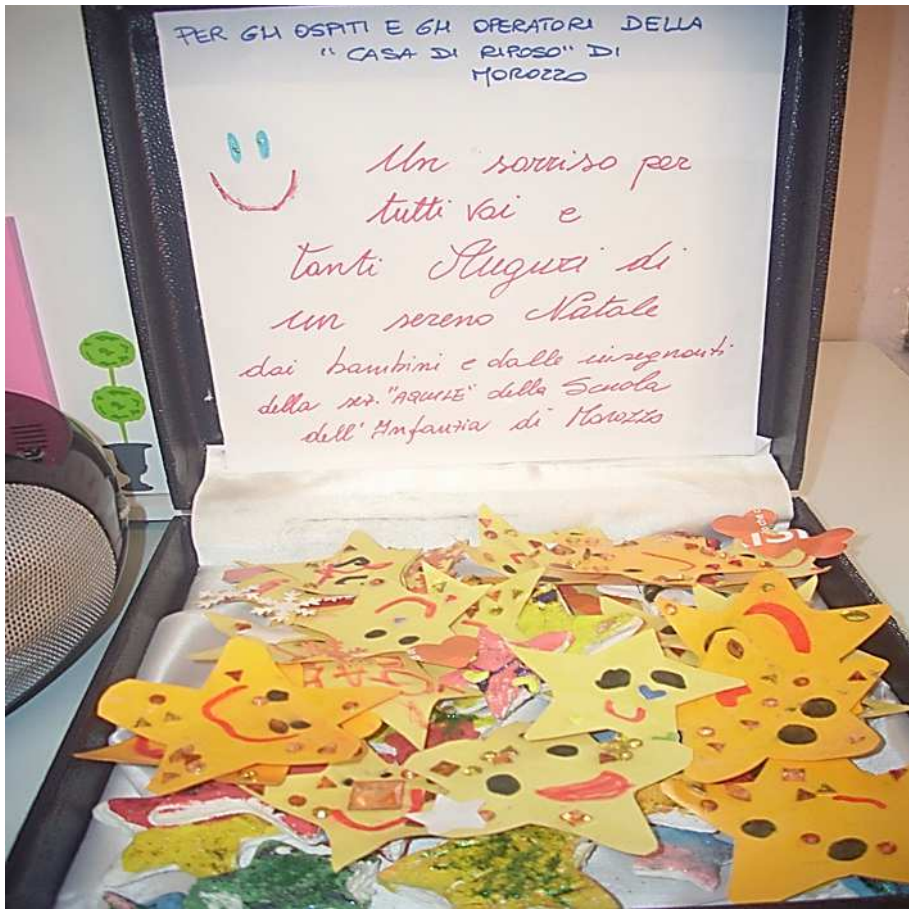 PER GLI OSPITI E GLI OPERATORI DELLA
"CASA DI RIPOSO" DI
MOROZZO
Un sorriso per
tutti voi e
tanti Auguri di
un sereno Natale
dai bambini e dalle insegnanti
della sez. "AQUILE" della Scuola
dell'Infanzia di Morozzo